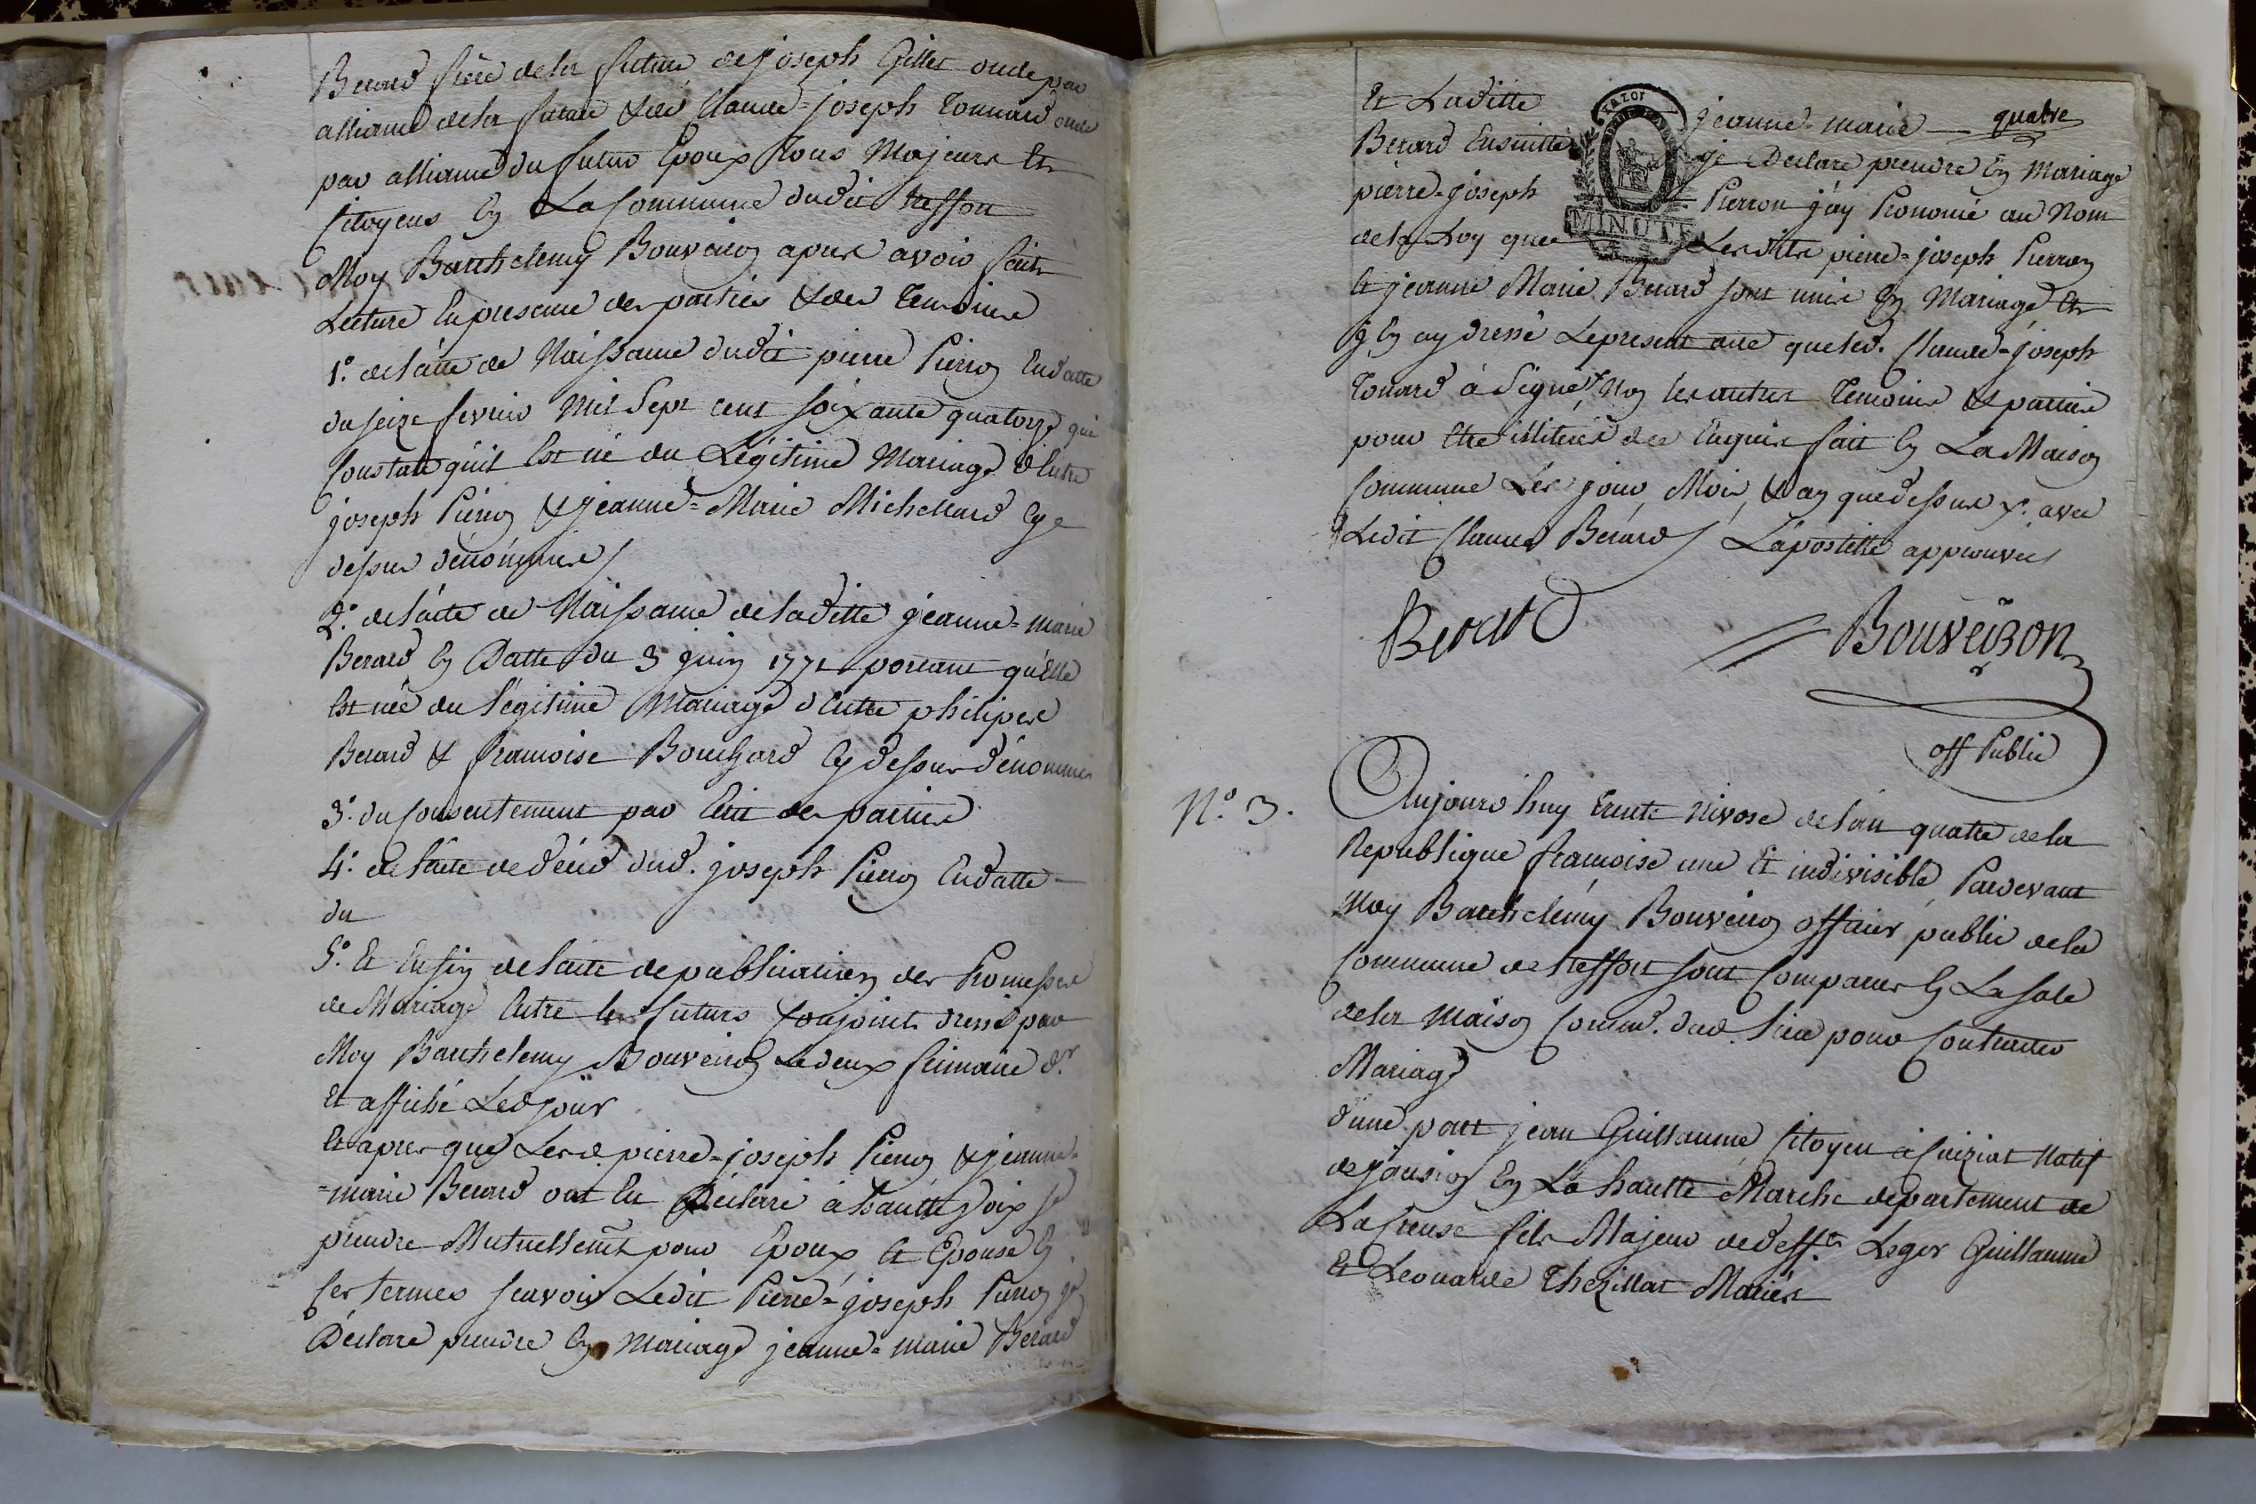 Berard frère de la future de joseph Gillet oncle par
alliance de la future & de Claude=joseph Tonnard oncle
par alliance du futur Epoux Tous Majeurs Et
Citoyens En La Commune dudit treffort
Moy Barthelemy Bouveiron apres avoir fait
Lecture En presence des parties & des Temoins
1°. de l'acte de Naissance dudit pierre Pierron En datte
du seize fevrier Mil Sept cent soixante quatorze qui
Constate qu'il Est né du Légitime Mariage d'Entre
joseph Pierron & jeanne=Marie Michellard Cy
dessus dénommés /
2°. de l'acte de Naissance de laditte jeanne=marie
Berard En Datte du 3 juin 1771 portant qu'Elle
Est née du légitime Mariage d'Entre philipes
Berard & francoise Bouchard Cy dessus dénommés
3°. du Consentement par Ecrit des parties
4°. de l'acte de décès dud. joseph Pierron En datte
du
5°. Et Enfin de l'acte de publication des Promesses
de Mariage Entre les futurs Conjoints dressé par
Moy Barthelemy Bouveiron Le deux frimaire dr.
Et affiché Led jour
Et apres que Lesd. pierre=joseph Pierron & jeanne=
=marie Berard ont Eu Déclaré à hautte Voix se
prendre Mutuellemt pour Epoux Et Epouse En
Ces termes scavoir Ledit Pierre=joseph Pierron je
Déclare prendre En mariage jeanne=marie Berard
quatre
Et Laditte jeanne=marie
Berard Ensuitte je Declare prendre En Mariage
pierre=joseph Pierron j'ay Prononcé au Nom
de la Loy que Lesdits pierre=joseph Pierron
Et jeanne Marie Berard sont unis En Mariage Et
j'En ay dressé Le present acte que led. Claude=joseph
Tonard à Signé Non les autres Temoins & parties
pour Etre illiterés de ce Enquis fait En La Maison
Commune Les jour, Mois, & an que dessus x. avec
Ledit Claude Berard / L'apostille approuvée /
MINUTE
Berard
Bouveiron
off Public
N°. 3.
Aujourd'huy trente nivose de l'an quatre de la
Republique francoise une Et indivisible, Pardevant
Moy Barthelémy Bouveiron officier public de la
Commune de treffort sont Comparus En La sale
de la Maison Comm. dud. lieu pour Contracter
Mariage
d'une part jean Guillaume Citoyen à Cuiziat Natif
de En La hautte Marche departement de
La Creuse fils Majeur de deffts. Leger Guillaume
Et Leonarde Thezillat Mariés